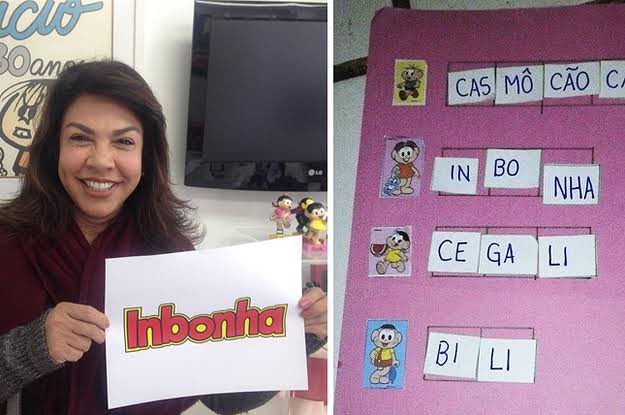 30 anos
LG
Inbonha
CAS MÔ CÃO CA
IN BO NHA
CE GA LI
BI LI